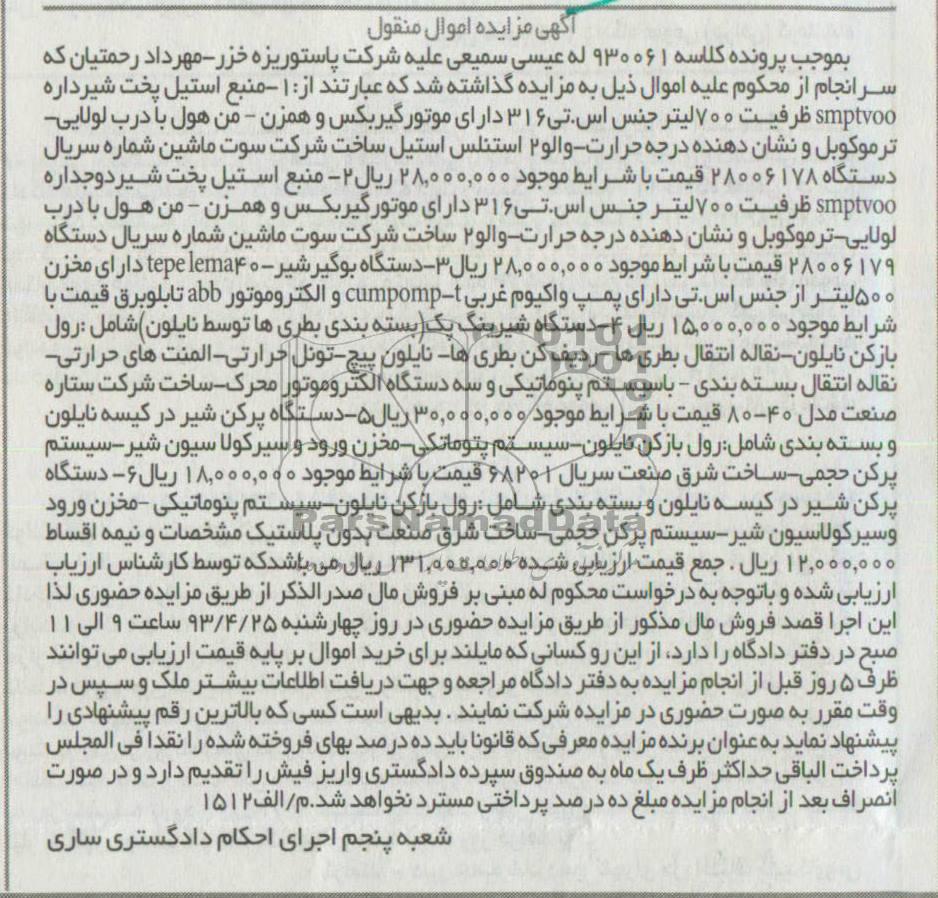 آگهی مزایده اموال منقول
بموجب پرونده کلاسه ۹۳۰۰۶۱ له عیسی سمیعی علیه شرکت پاستوریزه خزر-مهرداد رحمتیان که
سرانجام از محکوم علیه اموال ذیل به مزایده گذاشته شد که عبارتند از:۱-منبع استیل پخت شیرداره
smptvoo ظرفیت ۷۰۰لیتر جنس اس.تی۳۱۶ دارای موتورگیربکس و همزن - من هول با درب لولایی-
ترموکوبل و نشان دهنده درجه حرارت-والو۲ استنلس استیل ساخت شرکت سوت ماشین شماره سریال
دستگاه ۲۸۰۰۶۱۷۸ قیمت با شرایط موجود ۲۸,۰۰۰,۰۰۰ ریال۲- منبع استیل پخت شیردوجداره
smptvoo ظرفیت ۷۰۰لیتر جنس اس.تی۳۱۶ دارای موتورگیربکس و همزن - من هول با درب
لولایی-ترموکوبل و نشان دهنده درجه حرارت-والو۲ ساخت شرکت سوت ماشین شماره سریال دستگاه
۲۸۰۰۶۱۷۹ قیمت با شرایط موجود ۲۸,۰۰۰,۰۰۰ ریال۳-دستگاه بوگیرشیر-tepe lema۴۰ دارای مخزن
۵۰۰لیتر از جنس اس.تی دارای پمپ واکیوم غربی cumpomp-t و الکتروموتور abb تابلوبرق قیمت با
شرایط موجود ۱۵,۰۰۰,۰۰۰ ریال ۴-دستگاه شیرینگ پک(بسته بندی بطری ها توسط نایلون)شامل :رول
بازکن نایلون-نقاله انتقال بطری ها-ردیف کن بطری ها- نایلون پیچ-تونل حرارتی-المنت های حرارتی-
نقاله انتقال بسته بندی - باسیستم پنوماتیکی و سه دستگاه الکتروموتور محرک-ساخت شرکت ستاره
صنعت مدل ۴۰-۸۰ قیمت با شرایط موجود ۳۰,۰۰۰,۰۰۰ ریال۵-دستگاه پرکن شیر در کیسه نایلون
و بسته بندی شامل:رول بازکن نایلون-سیستم پتوماتکی-مخزن ورود و سیرکولا سیون شیر-سیستم
پرکن حجمی-ساخت شرق صنعت سریال ۶۸۲۰۱ قیمت با شرایط موجود ۱۸,۰۰۰,۰۰۰ ریال۶- دستگاه
پرکن شیر در کیسه نایلون و بسته بندی شامل :رول بازکن نایلون-سیستم پنوماتیکی - مخزن ورود
وسیرکولاسیون شیر-سیستم پرکن حجمی-ساخت شرق صنعت بدون پلاستیک مشخصات و نیمه اقساط
۱۲,۰۰۰,۰۰۰ ریال . جمع قیمت ارزیابی شده ۱۳۱,۰۰۰,۰۰۰ ریال می باشدکه توسط کارشناس ارزیاب
ارزیابی شده و باتوجه به درخواست محکوم له مبنی بر فروش مال صدرالذکر از طریق مزایده حضوری لذا
این اجرا قصد فروش مال مذکور از طریق مزایده حضوری در روز چهارشنبه ۹۳/۴/۲۵ ساعت ۹ الی ۱۱
صبح در دفتر دادگاه را دارد، از این رو کسانی که مایلند برای خرید اموال بر پایه قیمت ارزیابی می توانند
ظرف ۵ روز قبل از انجام مزایده به دفتر دادگاه مراجعه و جهت دریافت اطلاعات بیشتر ملک و سپس در
وقت مقرر به صورت حضوری در مزایده شرکت نمایند . بدیهی است کسی که بالاترین رقم پیشنهادی را
پیشنهاد نماید به عنوان برنده مزایده معرفی که قانونا باید ده درصد بهای فروخته شده را نقدا فی المجلس
پرداخت الباقی حداکثر ظرف یک ماه به صندوق سپرده دادگستری واریز فیش را تقدیم دارد و در صورت
انصراف بعد از انجام مزایده مبلغ ده درصد پرداختی مسترد نخواهد شد.م/الف۱۵۱۲
شعبه پنجم اجرای احکام دادگستری ساری
ParsNamadData